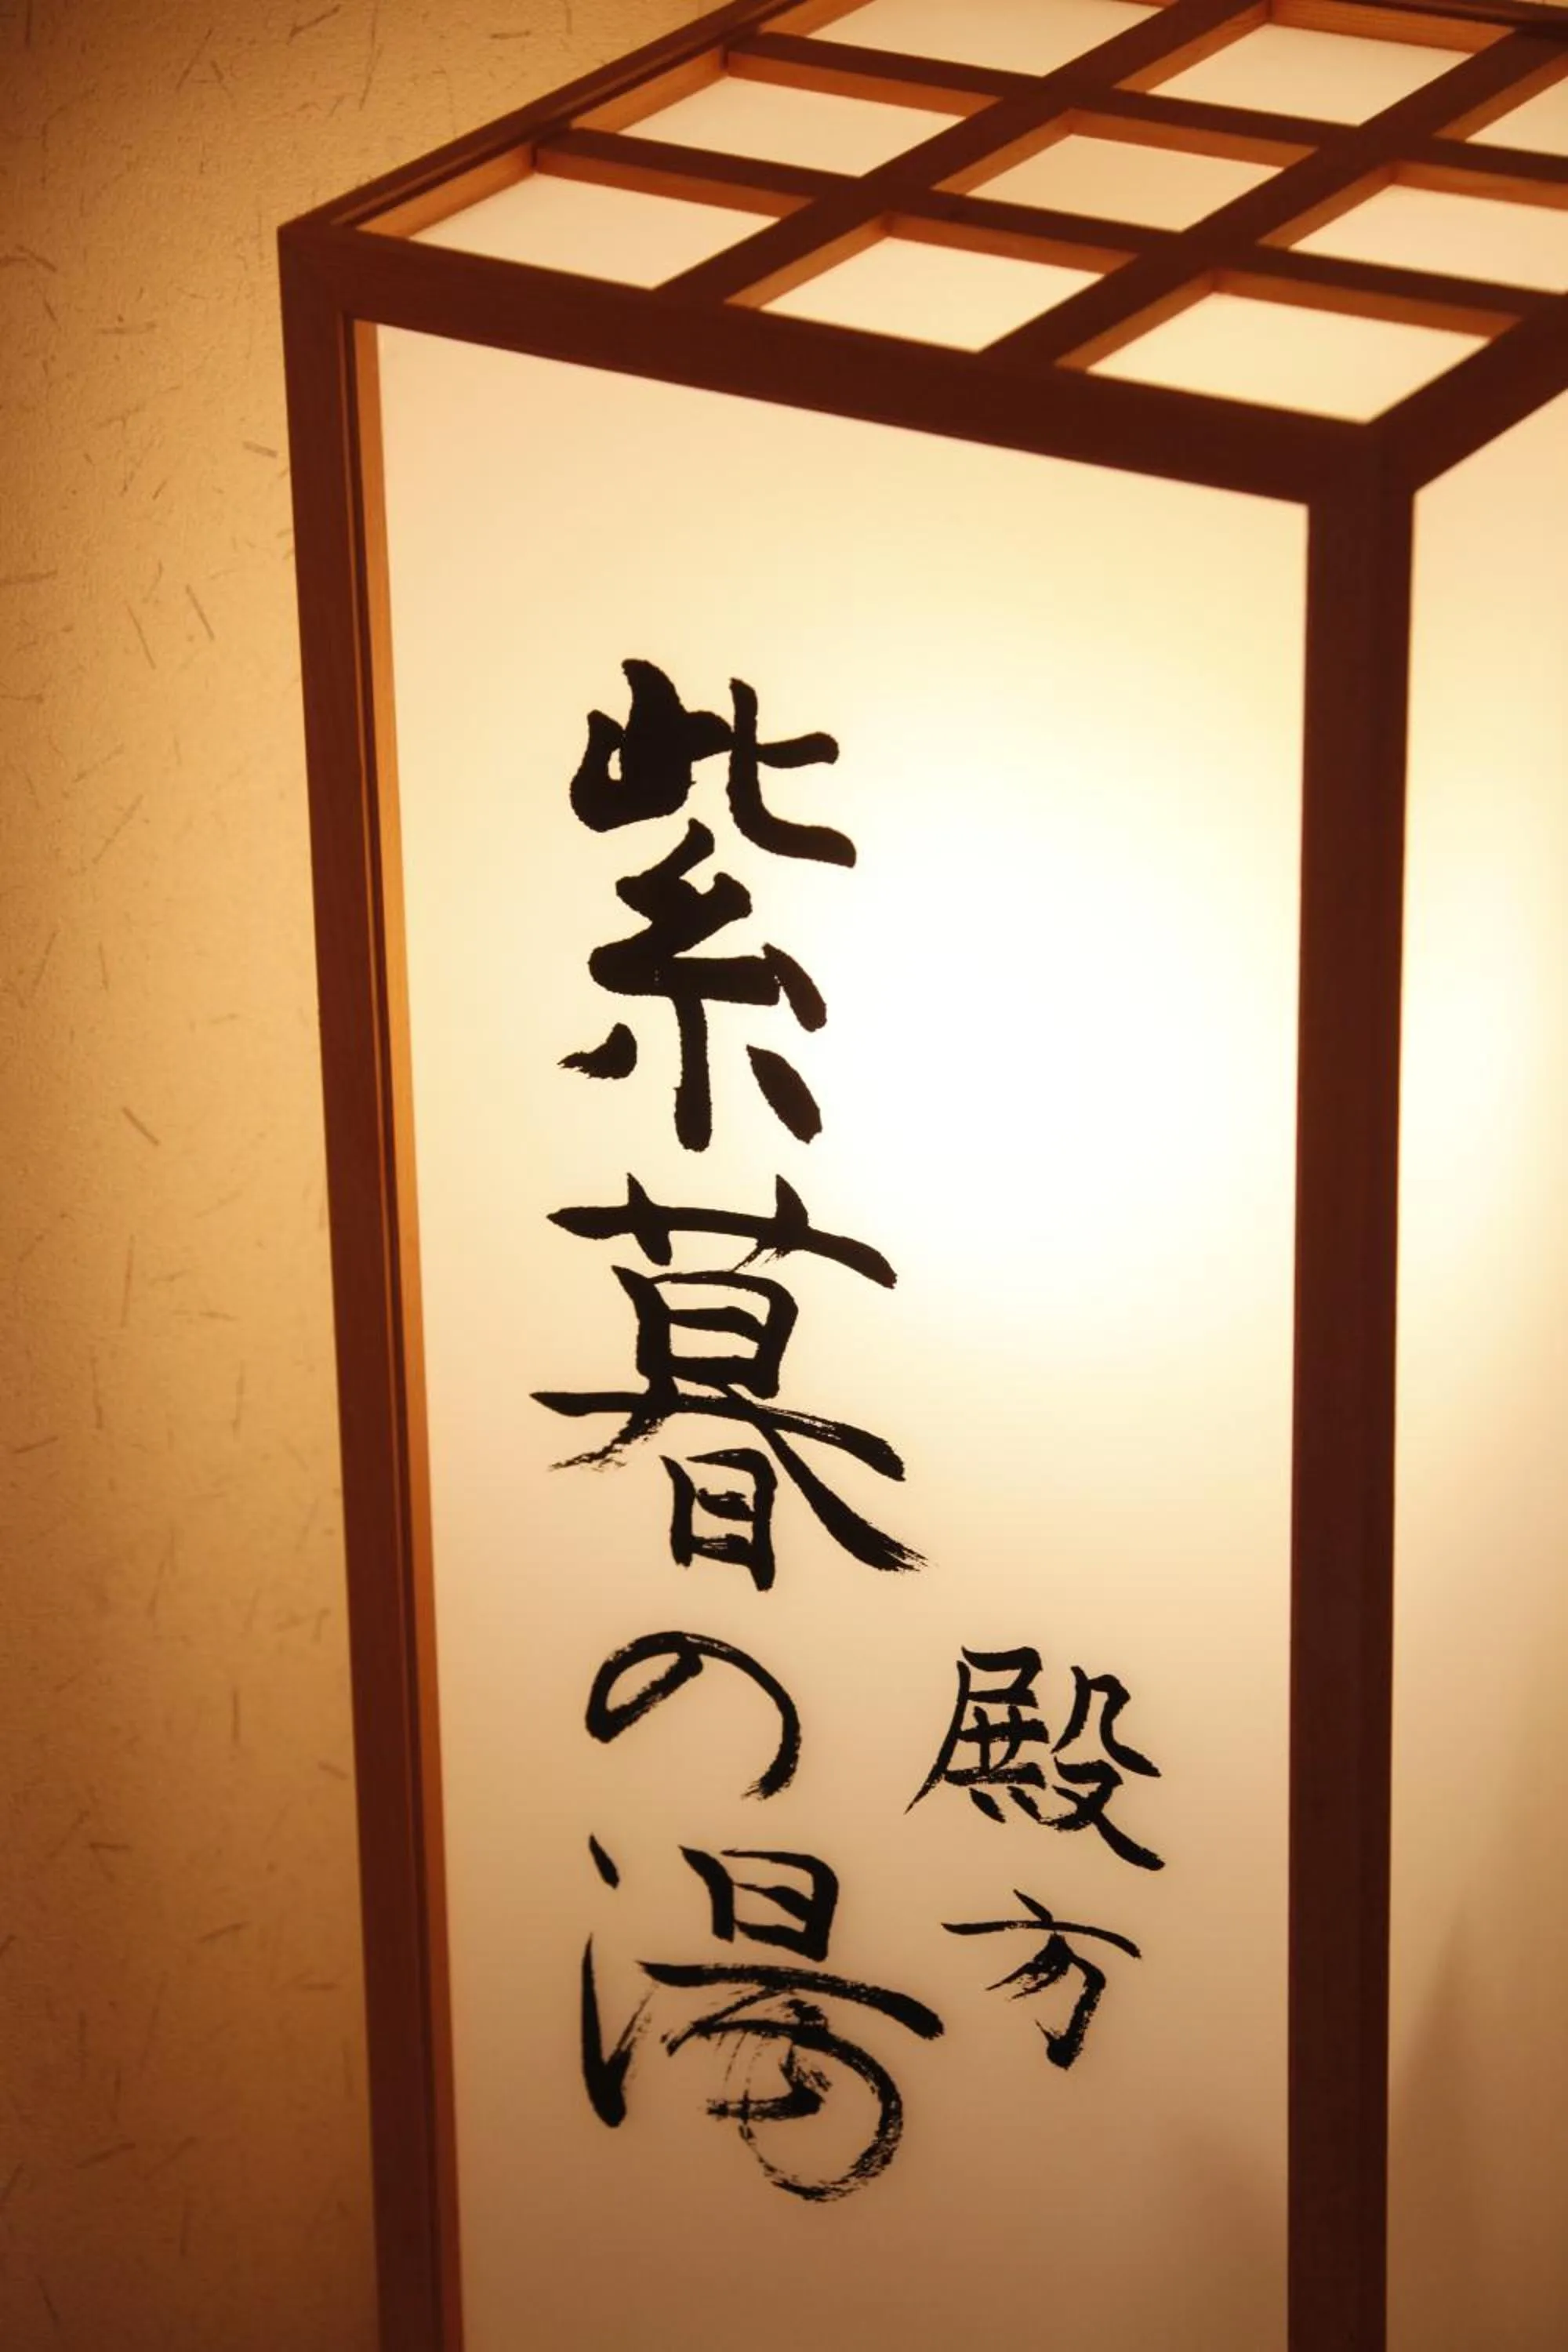 殿方
紫暮の湯